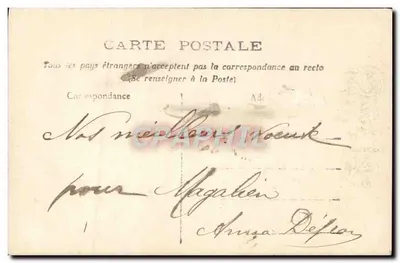 CARTE POSTALE
Tous les pays étrangers n'acceptent pas la correspondance au recto
(Se renseigner à la Poste)
Correspondance
Nos meilleurs voeux
pour Magalien
Anna